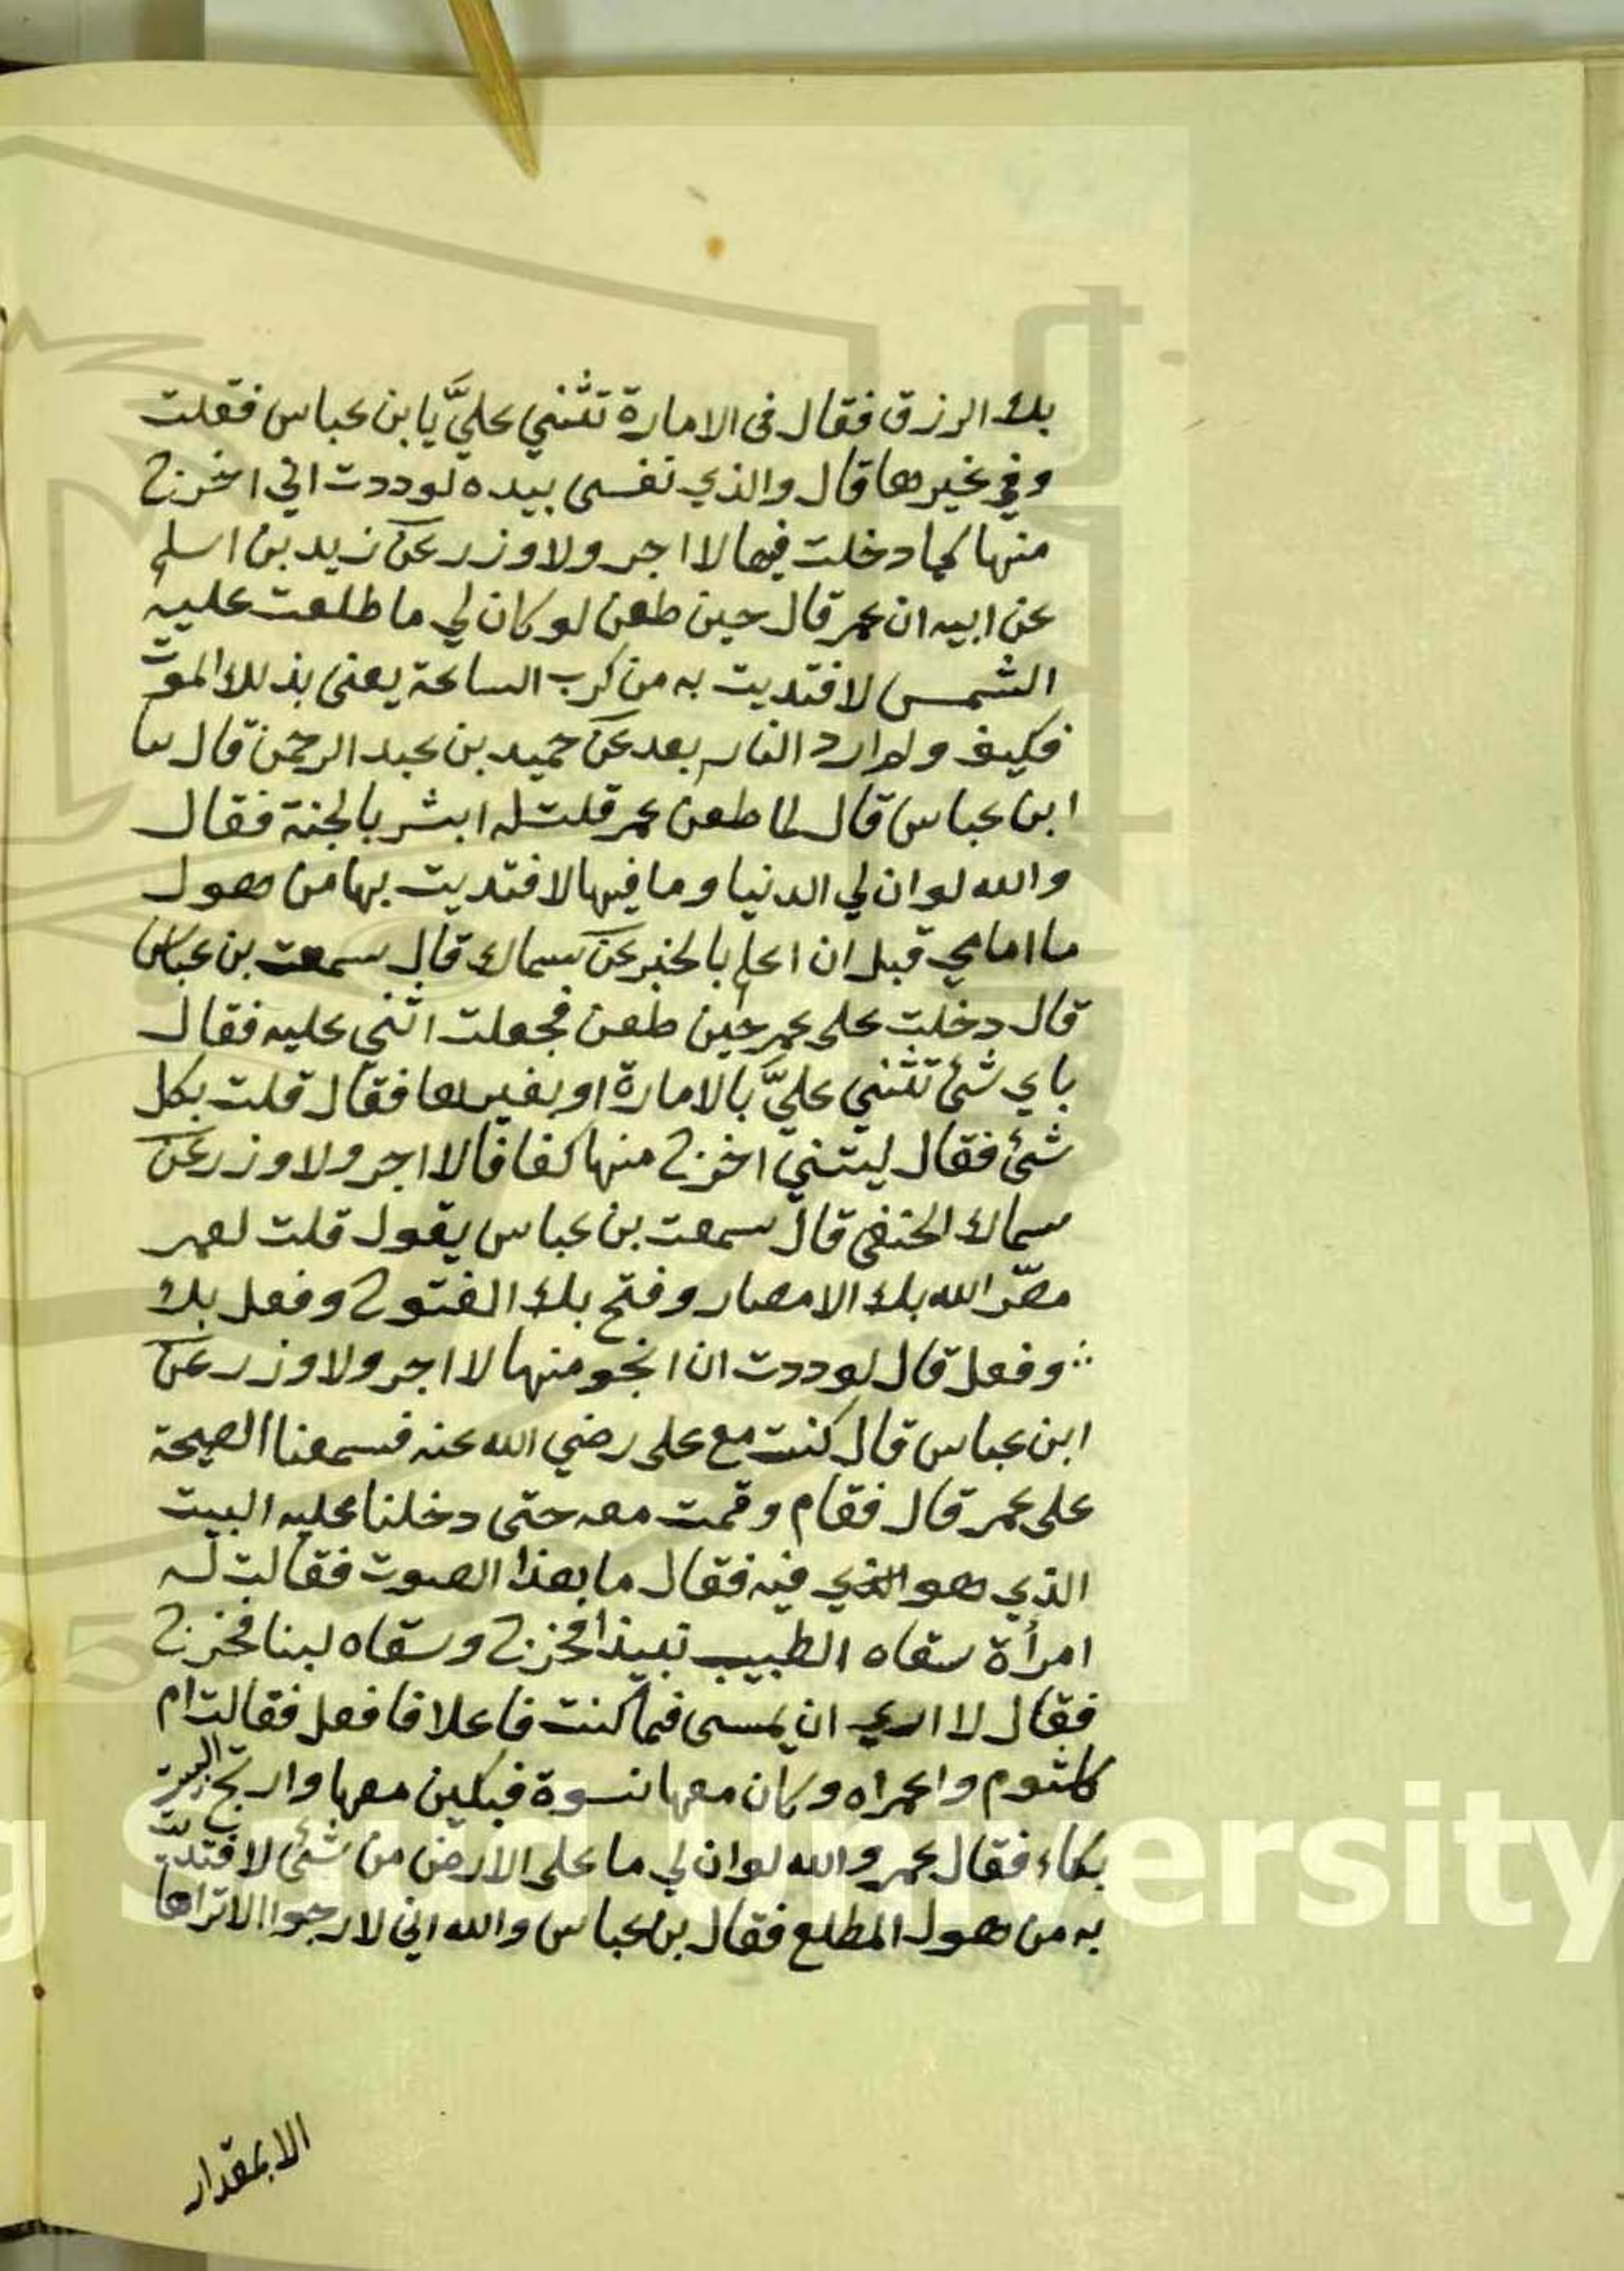 بك الرزق فقال فى الامارة تثني عليَّ يا بن عباس فقلت
وفي غيرها قال والذي نفسى بيده لوددت اني اخرج
منها كما دخلت فيها لا اجر ولا وزر عن زيد بن اسلم
عن ابيه ان عمر قال حين طعن لو كان لي ما طلعت عليه
الشمس لافتديت به من كرب الساعة يعنى بذلك الموت
فكيف ولم ارد النار بعد عن حميد بن عبد الرحمن قال سا
ابن عباس قال لما طعن عمر قلت له ابشر بالجنة فقال
والله لو ان لي الدنيا وما فيها لافتديت بها من هول
ما امامي قبل ان اعلم بالخبر عن سماك قال سمعت بن عباس
قال دخلت على عمر حين طعن فجعلت اثني عليه فقال
باي شئ تثني عليَّ بالامارة او بغيرها فقال قلت بكل
شئ فقال ليتني اخرج منها كفافا لا اجر ولا وزر عن
سماك الحنفى قال سمعت بن عباس يقول قلت لعمر
مصّر الله بك الامصار وفتح بك الفتوح وفعل بك
وفعل قال لوددت ان انجو منها لا اجر ولا وزر عن
ابن عباس قال كنت مع على رضي الله عنه فسمعنا الصيحة
على عمر قال فقام وقمت معه حتى دخلنا عليه البيت
الذي هو الذي فيه فقال ما هذا الصوت فقالت له
امرأة سقاه الطبيب نبيذا فخرج وسقاه لبنا فخرج
فقال لا ارى ان يمسى فما كنت فاعلا فافعل فقالت ام
كلثوم واعمراه وكان معها نسوة فبكين معها وارتج البيت
بكاء فقال عمر والله لو ان لي ما على الأرض من شئ لافتديت
به من هول المطلع فقال بن عباس والله اني لارجوا الا تراها
الا بمقدار
King Saud University